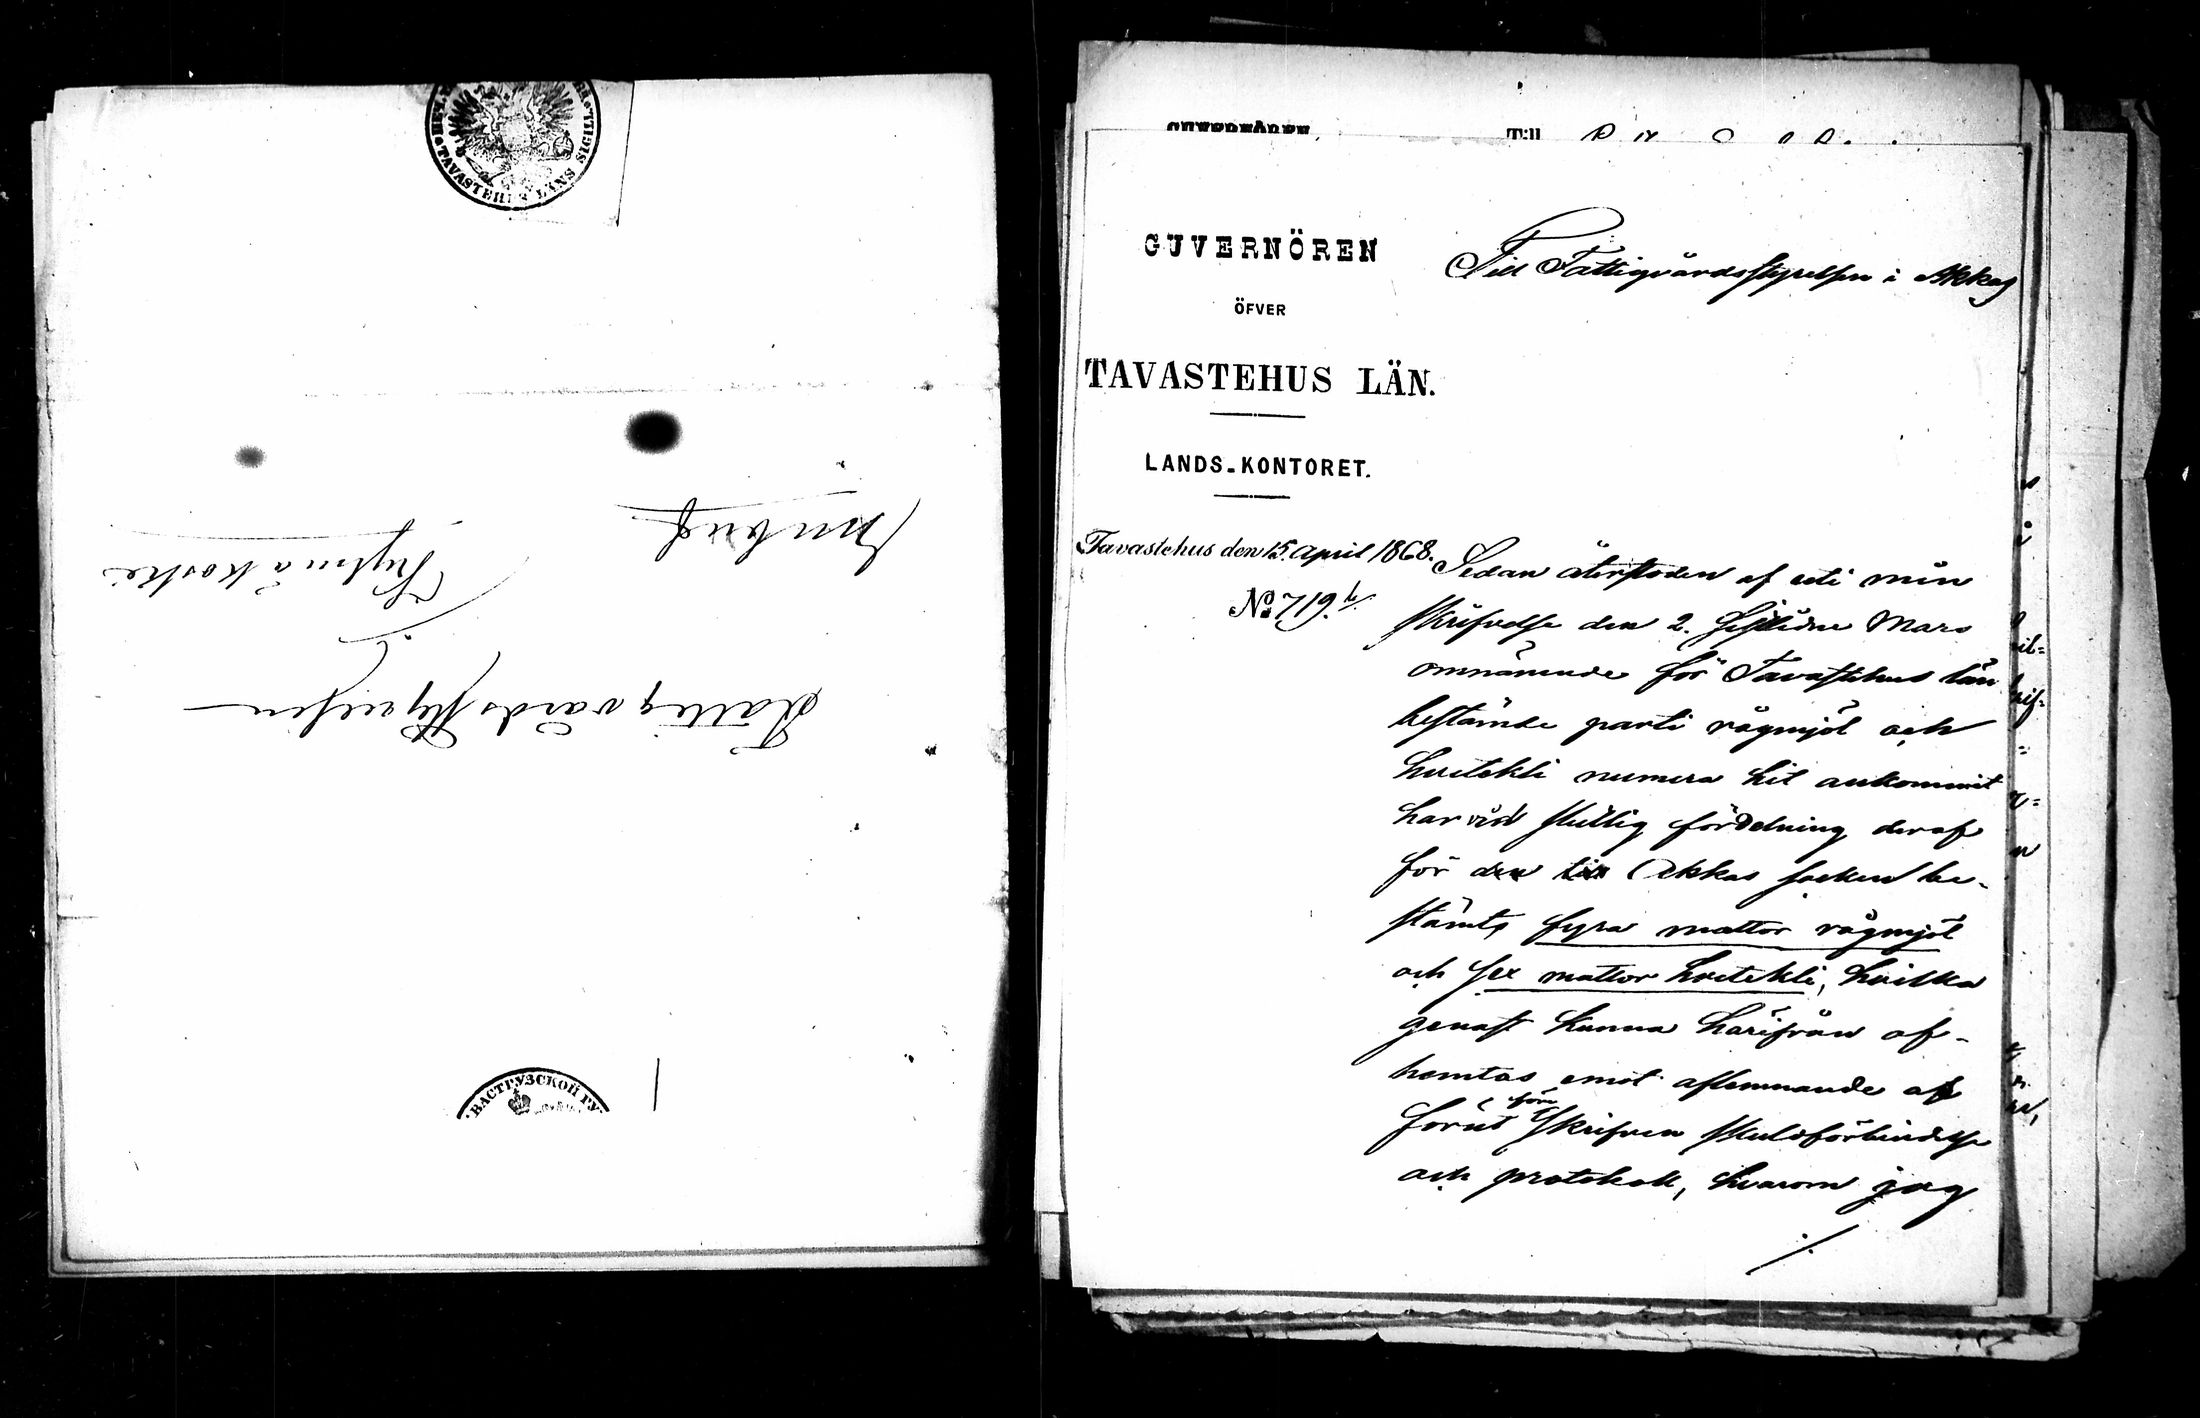 TAVASTEHUS LÄNS
ВАСТГУЗСКОЙ ГУ
Fattigvårdsstyrelsen
i
Kylmäkoski
GUVERNÖREN
Till
GUVERNÖREN
ÖFVER
TAVASTEHUS LÄN.
LANDS-KONTORET.
Tavastehus den 15. April 1868.
No 719.
Till Fattigvårdsstyrelsen i Akkas
Sedan återstoden af uti min
skrifvelse den 2. sistlidne Mars
omnämnde för Tavastehus län
bestämde parti rågmjöl och
hvetekli numera hit ankommit
har vid slutlig fördelning deraf
för den Akkas socken be-
stämts fyra mattor rågmjöl
och sex mattor hvetekli, hvilka
genast kunna härifrån af-
hemtas emot aflemnande af
förut föreskrifven skuldförbindelse
och protokoll, hvarom jag
./.